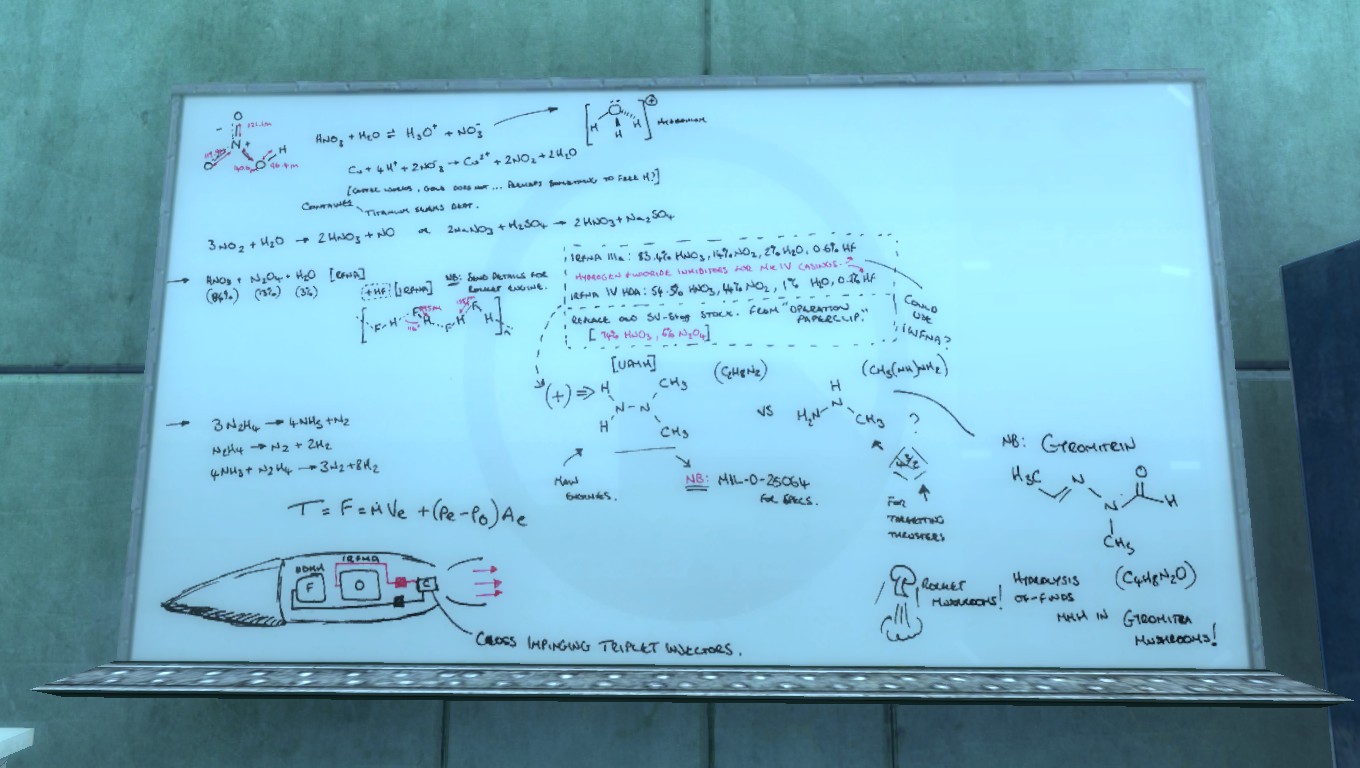 HNO₃ + H₂O ⇌ H₃O⁺ + NO₃⁻
HYDRONIUM
Cu + 4H⁺ + 2NO₃⁻ → Cu²⁺ + 2NO₂ + 2H₂O
[COPPER WORKS, GOLD DOES NOT... PERHAPS SOMETHING TO FREE H?]
CONTAINER
TITANIUM SEEMS BEST.
3NO₂ + H₂O → 2HNO₃ + NO or 2NaNO₃ + H₂SO₄ → 2HNO₃ + Na₂SO₄
→ HNO₃ + N₂O₄ + H₂O [RFNA]
(84%) (13%) (3%)
+HF [IRFNA]
NB: SEND DETAILS FOR
ROCKET ENGINE.
IRFNA IIIa: 83.4% HNO₃, 14% NO₂, 2% H₂O, 0.6% HF
HYDROGEN FLUORIDE INHIBITORS FOR MK IV CASINGS.
IRFNA IV HDA: 54.5% HNO₃, 44% NO₂, 1% H₂O, 0.7% HF
REPLACE OLD SV-Stoff STOCK. FROM "OPERATION
PAPERCLIP."
[94% HNO₃, 6% N₂O₄]
COULD
USE
IWFNA?
[UDMH]
(C₂H₈N₂)
(CH₃(NH)NH₂)
(+) ⇒
H
CH₃
N - N
H
CH₃
VS
H
N
H₂N
CH₃
?
MAIN
ENGINES.
NB: MIL-O-25064
FOR SPECS.
FOR
TARGETTING
THRUSTERS
→ 3N₂H₄ → 4NH₃ + N₂
N₂H₄ → N₂ + 2H₂
4NH₃ + N₂H₄ → 3N₂ + 8H₂
T = F = ṁVe + (Pe - P₀)Ae
F
IRFNA
O
C
CROSS IMPINGING TRIPLET INJECTORS.
NB: GYROMITRIN
H₃C
N
O
N
H
CH₃
(C₄H₈N₂O)
ROCKET
MUSHROOMS!
HYDROLYSIS
OF FINDS
MMH IN GYROMITRA
MUSHROOMS!